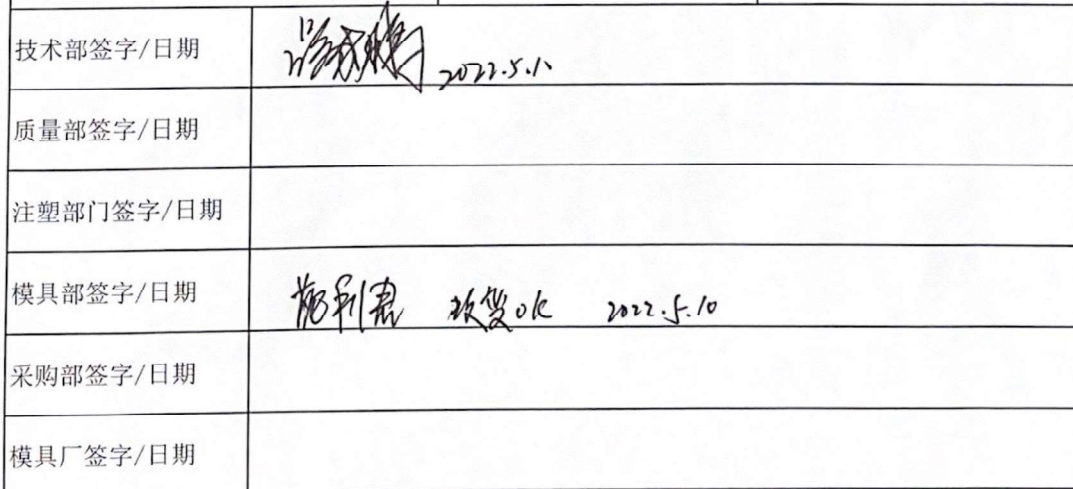 技术部签字/日期 2022.5.10
质量部签字/日期
注塑部门签字/日期
模具部签字/日期 OK 2022.5.10
采购部签字/日期
模具厂签字/日期